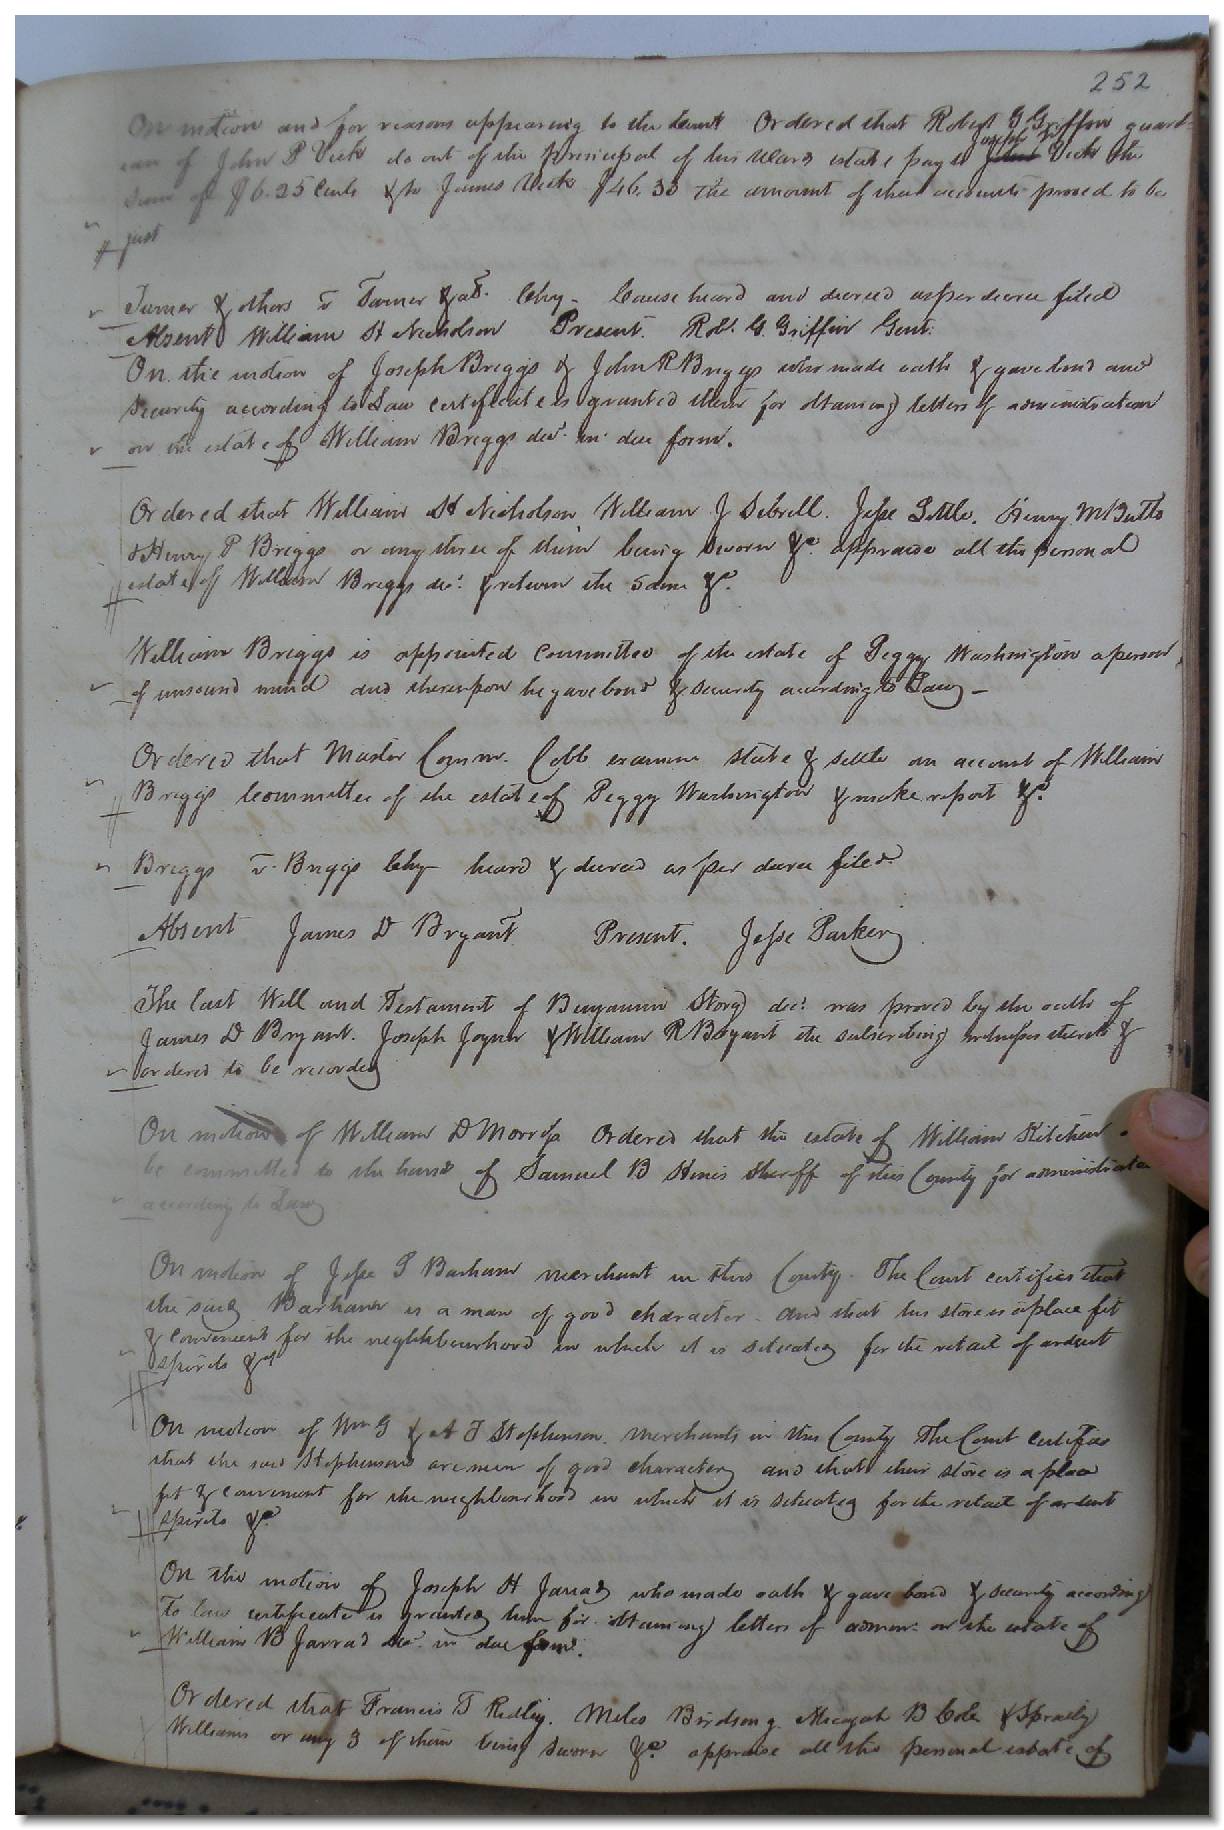 252
On motion and for reasons appearing to the Court Ordered that Robert G Griffin guard
ian of John P Vick do out of the principal of his Wards estate pay to Joseph Vick the
Sum of $6.25 Cents & to James Vick $46.33 The amount of their accounts proved to be
just
Turner & others v Turner & als. Chy - Cause heard and decreed as per decree filed
Absent William H Nicholson Present. Robt. G. Griffin Gent.
On the motion of Joseph Briggs & John R Briggs who made oath & gave bond and
Security according to Law certificate is granted them for obtaining letters of administration
on the estate of William Briggs decd. in due form.
Ordered that William H Nicholson William J Sebrell. Jesse Little. Henry M Butts
& Henry P Briggs or any three of them being sworn &c. appraise all the personal
estate of William Briggs dec. & return the same &c.
William Briggs is appointed committee of the estate of Peggy Washington a person
of unsound mind and thereupon he gave bond & security according to Law -
Ordered that Master Comm. Cobb examine state & settle an account of William
Briggs Committee of the estate of Peggy Washington & make report &c.
Briggs v. Briggs Chy heard & decreed as per decree filed.
Absent James D Bryant Present. Jesse Parker
The last Will and Testament of Benjamin Story dec. was proved by the oath of
James D Bryant. Joseph Joyner & William R Bryant the subscribing witnesses thereto &
ordered to be recorded
On motion of William D Morriss Ordered that the estate of William Kitchen
be committed to the hands of Samuel B Hines Sheriff of this County for administration
according to Law
On motion of Jesse S Barham merchant in this County. The Court certifies that
the said Barham is a man of good character and that his store is a place fit
& convenient for the neighbourhood in which it is situated for the retail of ardent
spirits &c
On motion of Wm G & A T Stephenson. Merchants in this County The Court certifies
that the said Stephensons are men of good character and that their store is a place
fit & convenient for the neighbourhood in which it is situated for the retail of ardent
spirits &c.
On the motion of Joseph H Jarrad who made oath & gave bond & security according
To law certificate is granted him for obtaining letters of admon. on the estate of
William B Jarrad dec. in due form.
Ordered that Francis T Ridley. Miles Birdsong. Micajah B Cole & Spratly
Williams or any 3 of them being sworn &c. appraise all the personal estate of